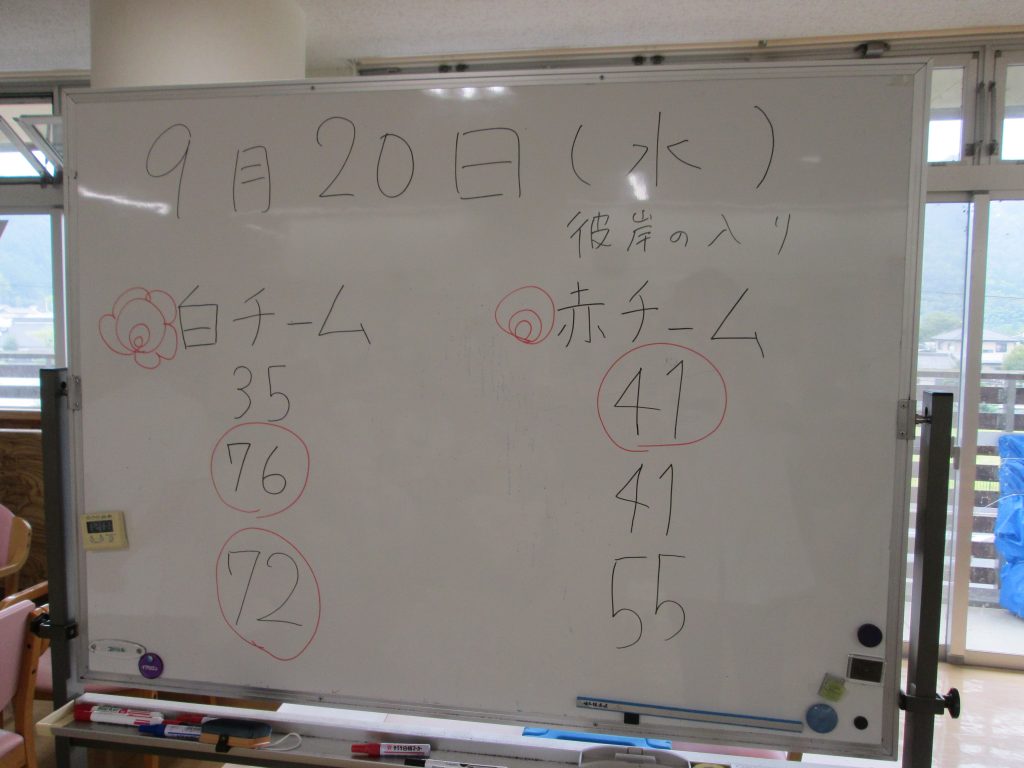 9月20日(水)
彼岸の入り
白チーム 赤チーム
35 41
76 41
72 55